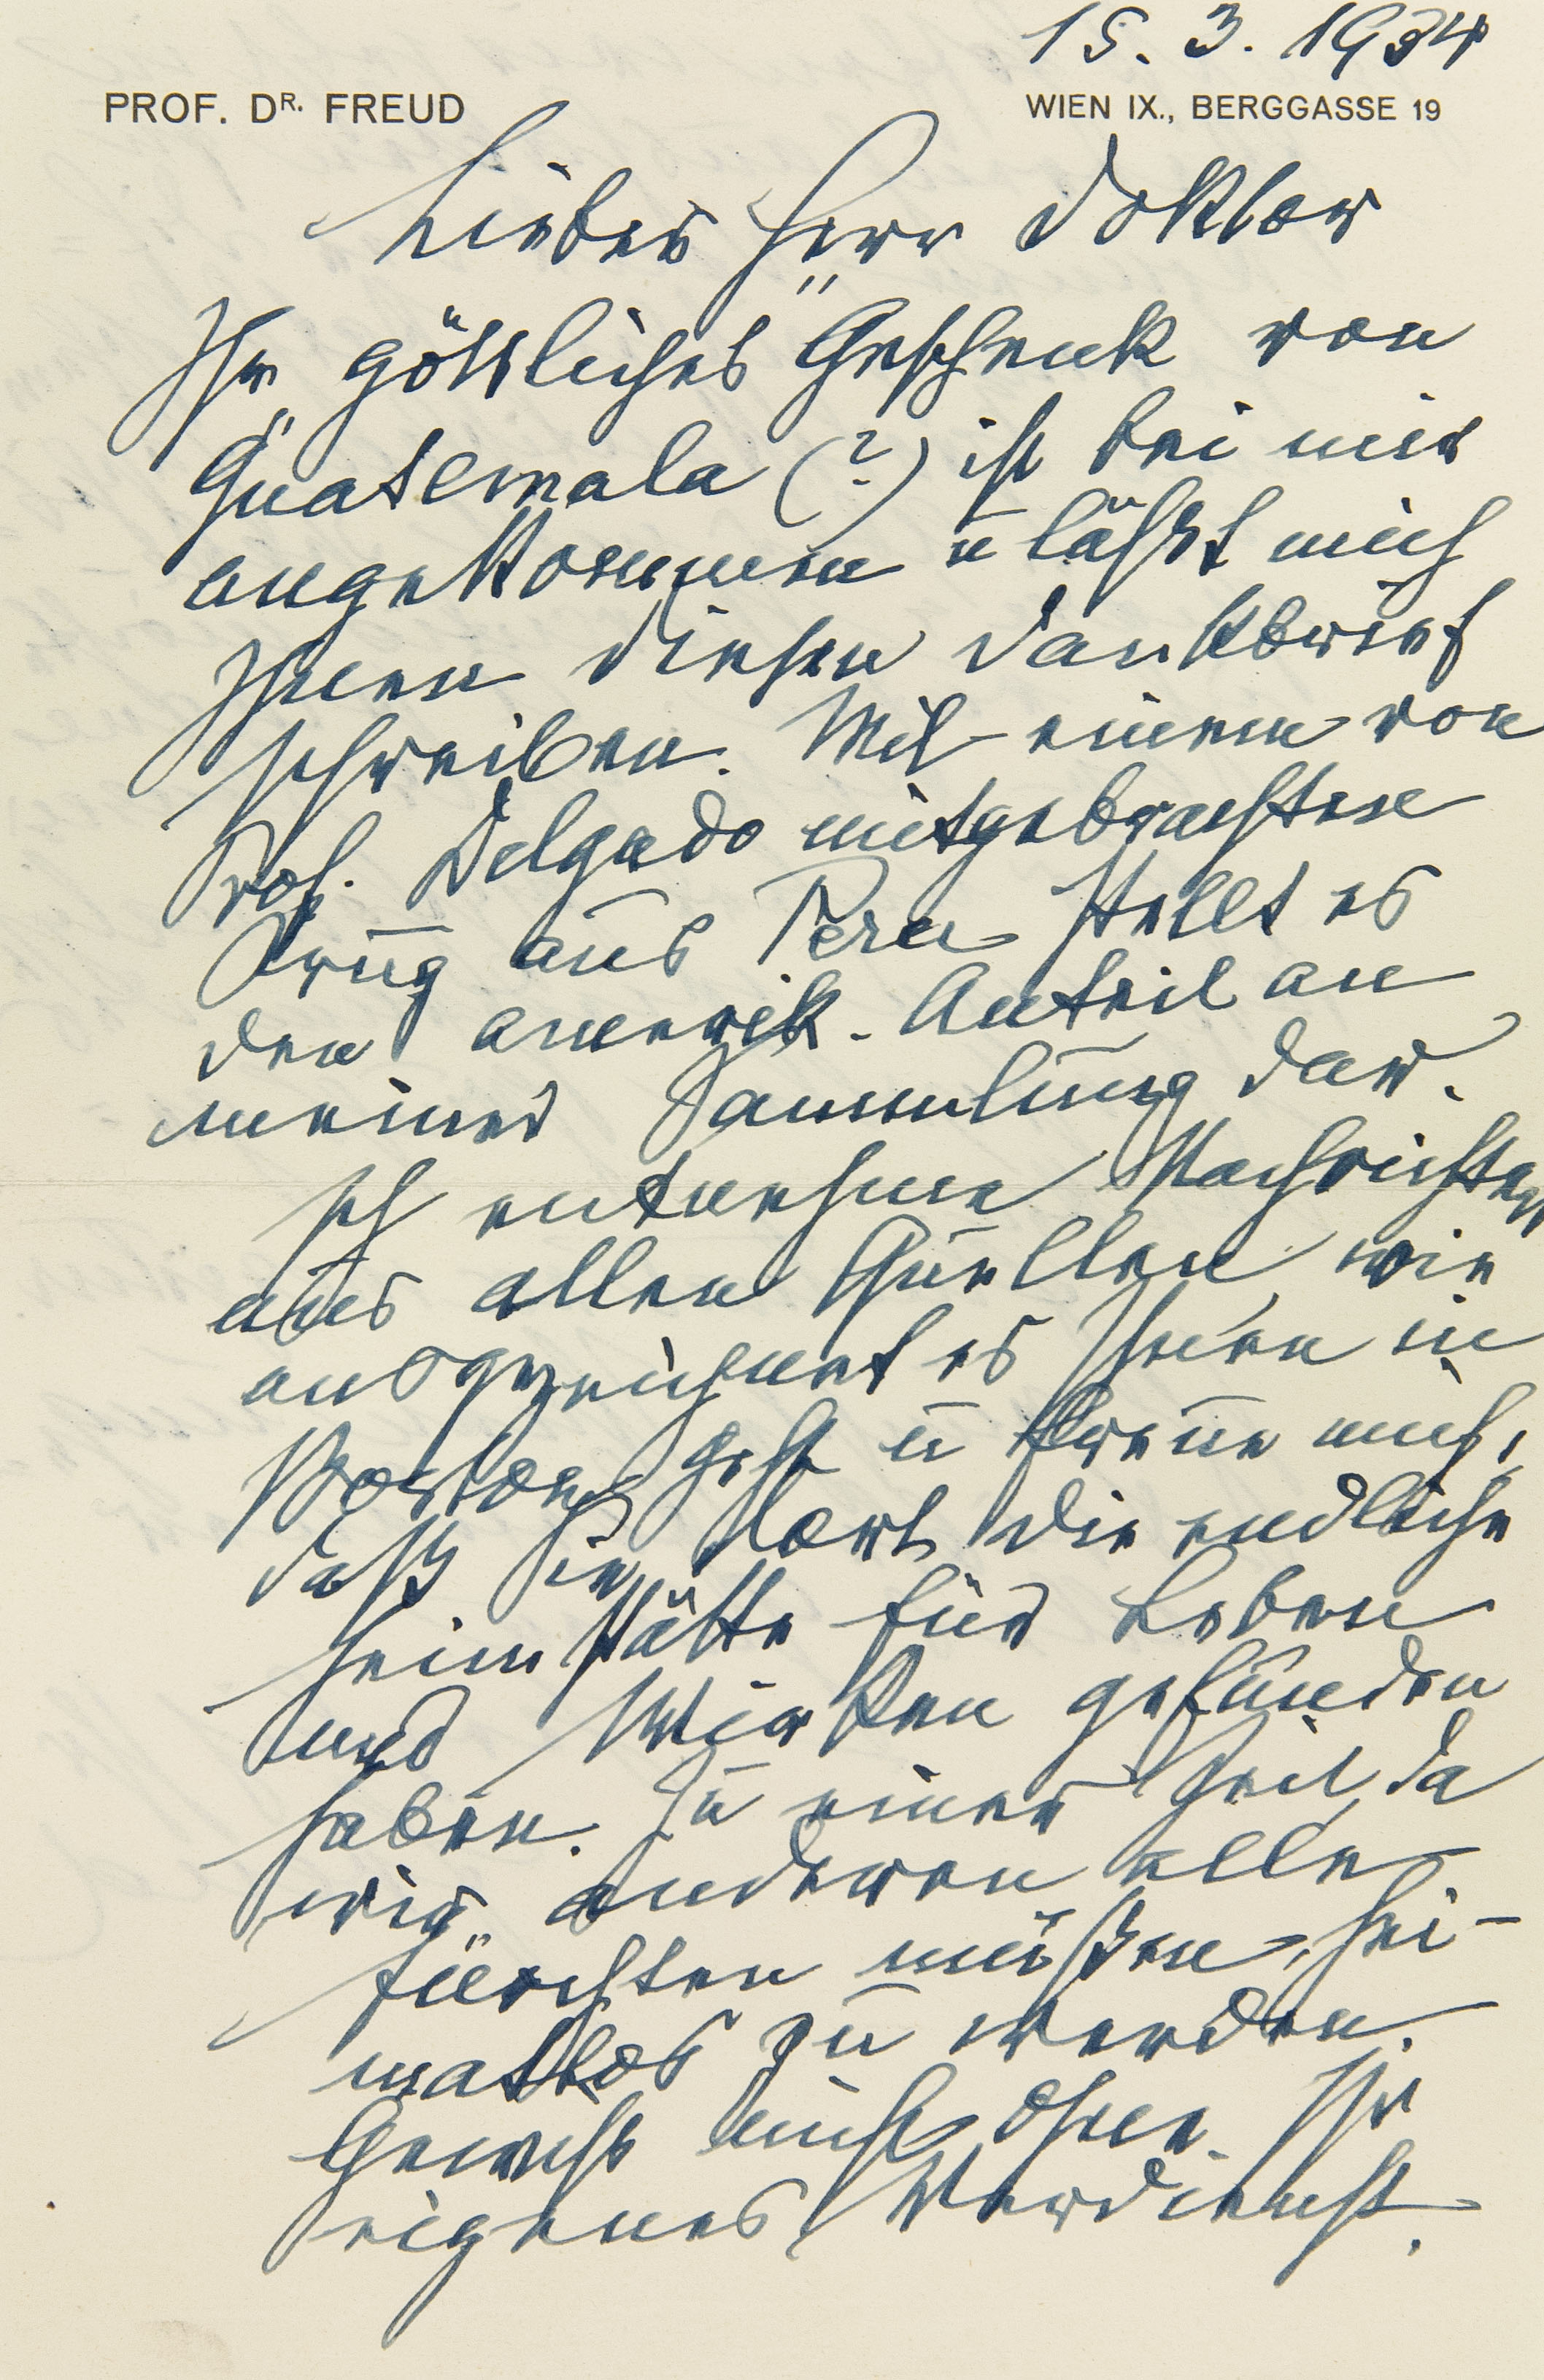 15. 3. 1934
PROF. DR. FREUD
WIEN IX., BERGGASSE 19
Lieber Herr Doktor
Ihr „göttliches" Geschenk von
Guatemala (?) ist bei mir
angekommen u läßt mich
Ihnen diesen Dankbrief
schreiben. Mit einem von
Prof. Delgado mitgebrachten
Krug aus Peru stellt es
den amerik. Anteil an
meiner Sammlung dar.
Ich entnehme Nachrichten
aus allen Quellen, wie
ausgezeichnet es Ihnen in
Boston geht u freue mich,
daß Sie dort die endliche
Heimstätte für Leben
und Wirken gefunden
haben. Zu einer Zeit, da
wir anderen alle
fürchten müßen, hei-
matlos zu werden.
Gewiß nicht ohne Ihr
eigenes Verdienst.